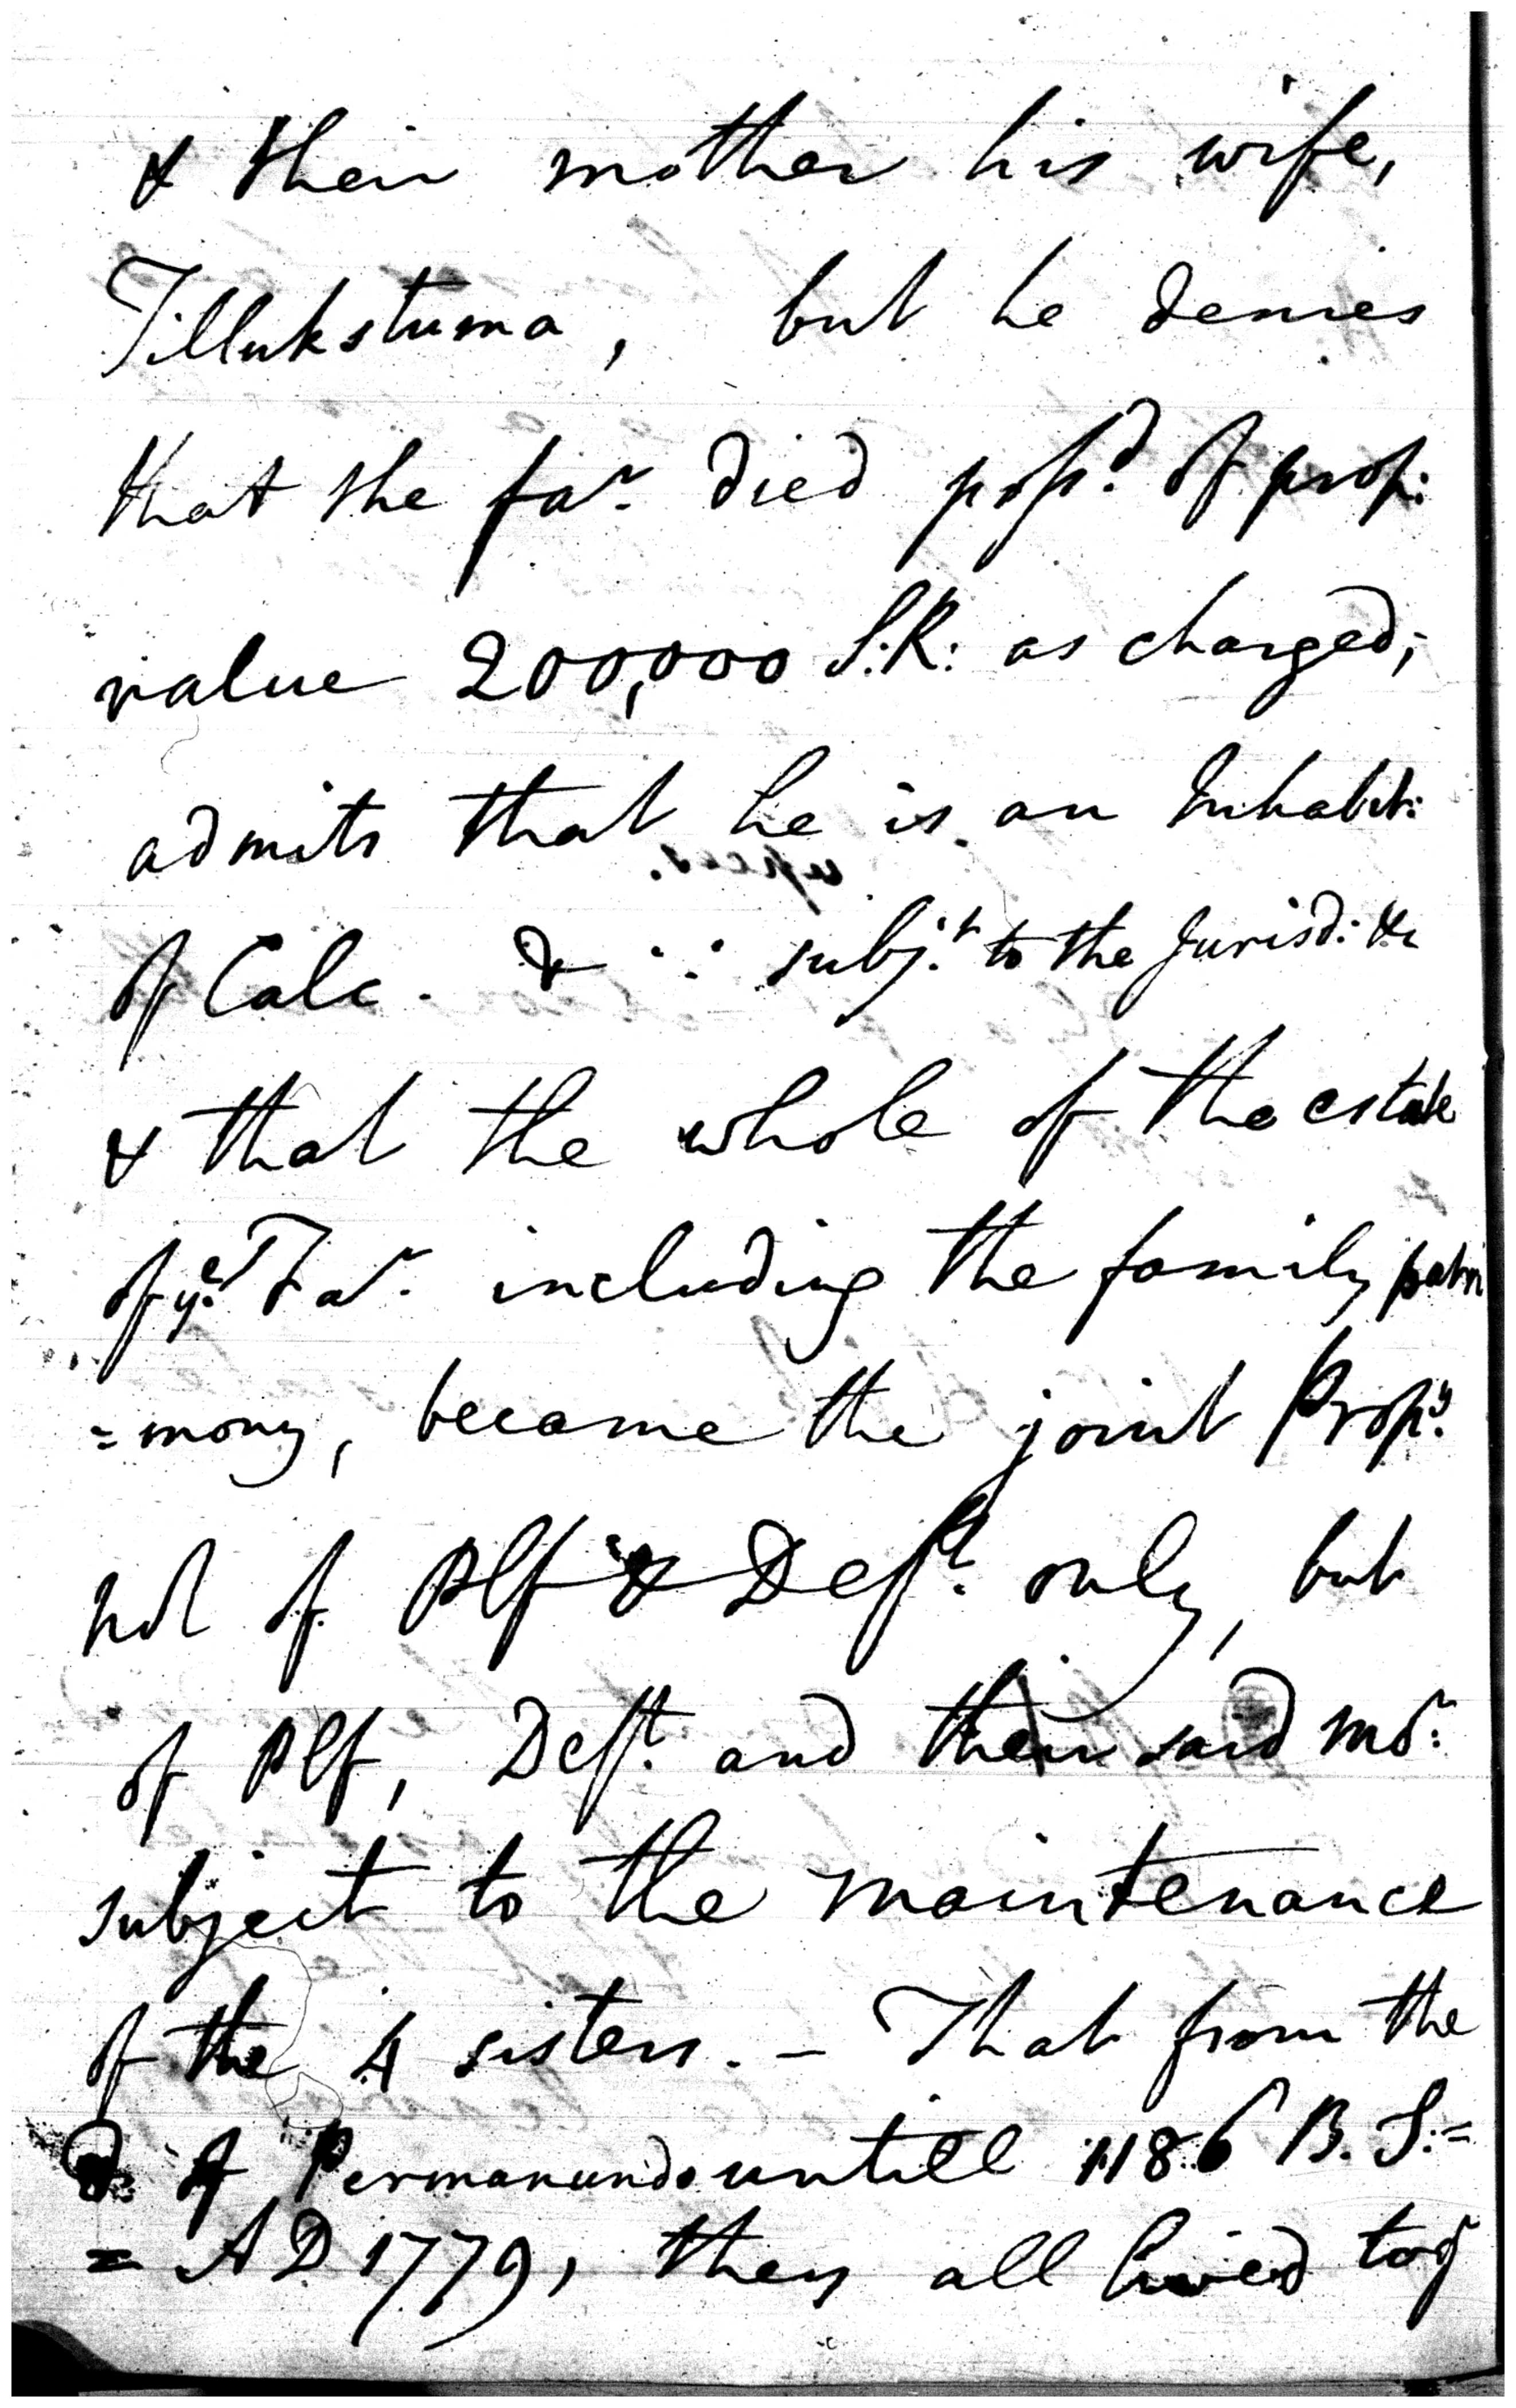 & their mother his wife,
Tillukstuma, but he denies
that the far. died possd. of prop:
value 200,000 S:R: as charged;
admits that he is an Inhabit:
of Calc. & ∴ subjt. to the Jurisd: &c
& that the whole of the estate
of ye. Far. including the family patri
=mony, became the joint Propy.
not of Plf & Deft. only, but
of Plf, Deft. and their said mor.
subject to the maintenance
of the 4 sisters. – That from the
d. of Permanund untill 1186 B. S. =
= AD 1779, they all lived togr